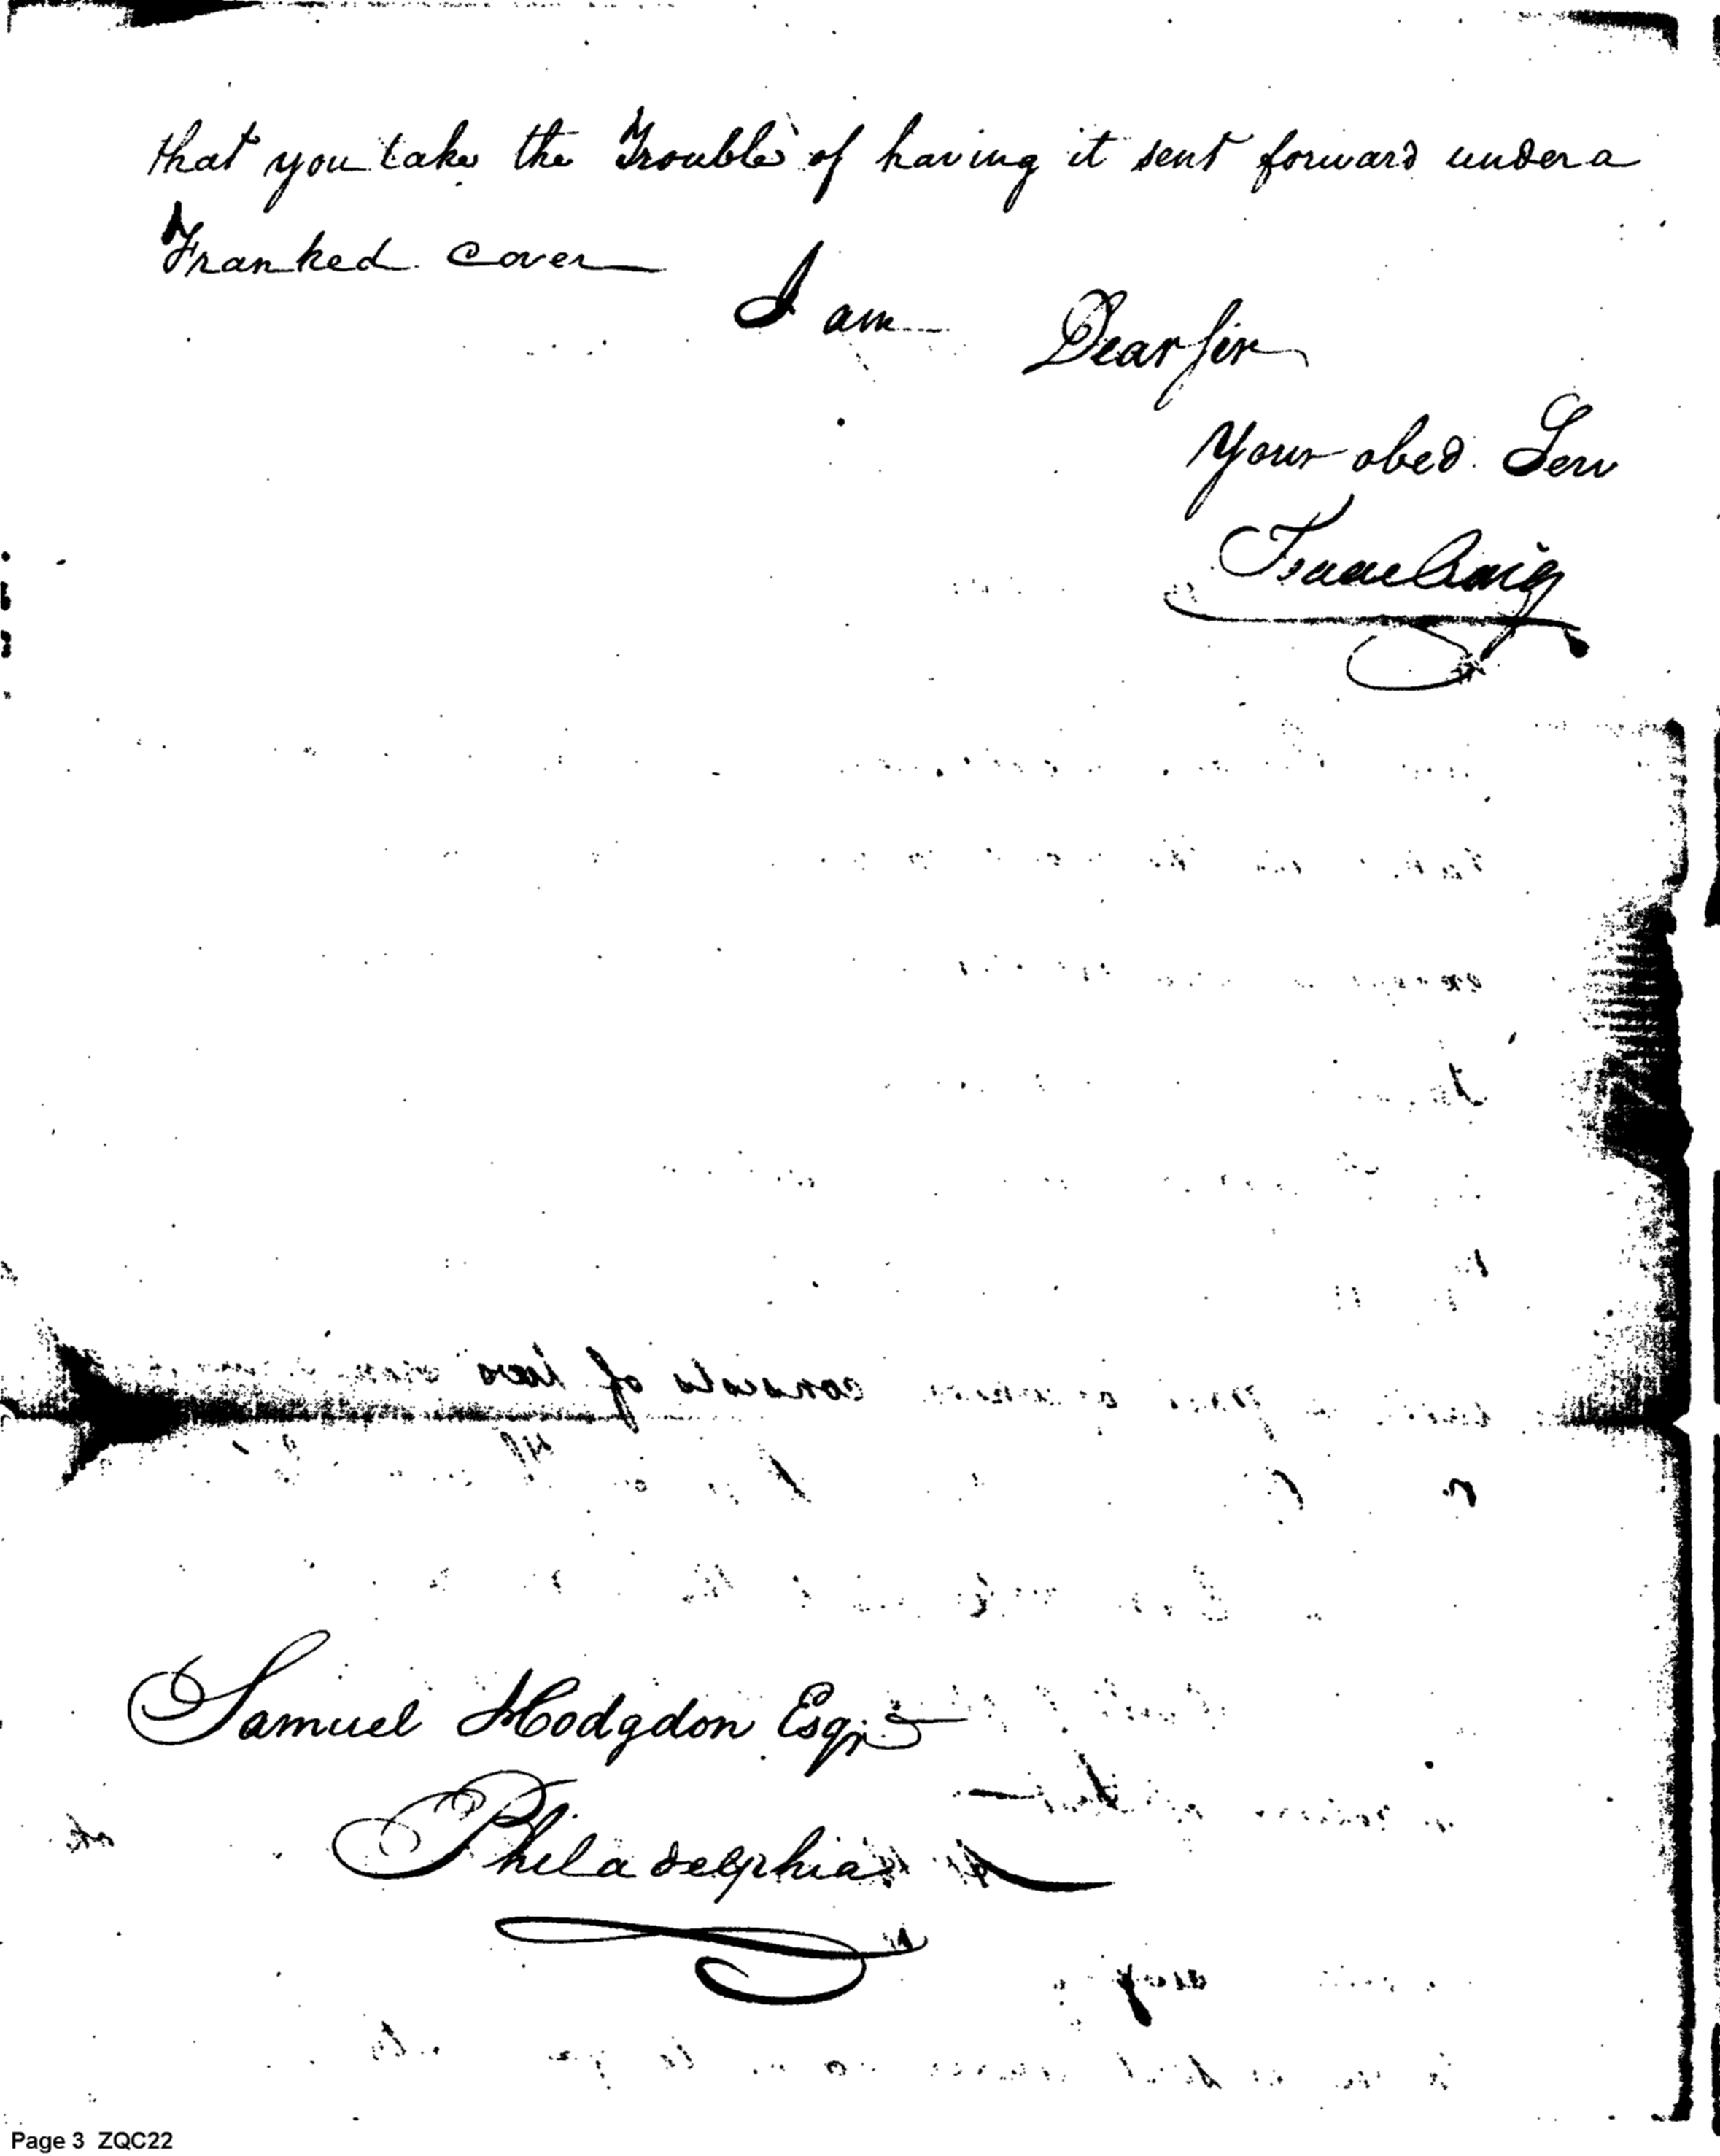 that you take the Trouble of having it sent forward under a
Franked cover
I am
Dear Sir
Your obed. Serv
Isaac Craig
Samuel Hodgdon Esqr
Philadelphia
Page 3 ZQC22